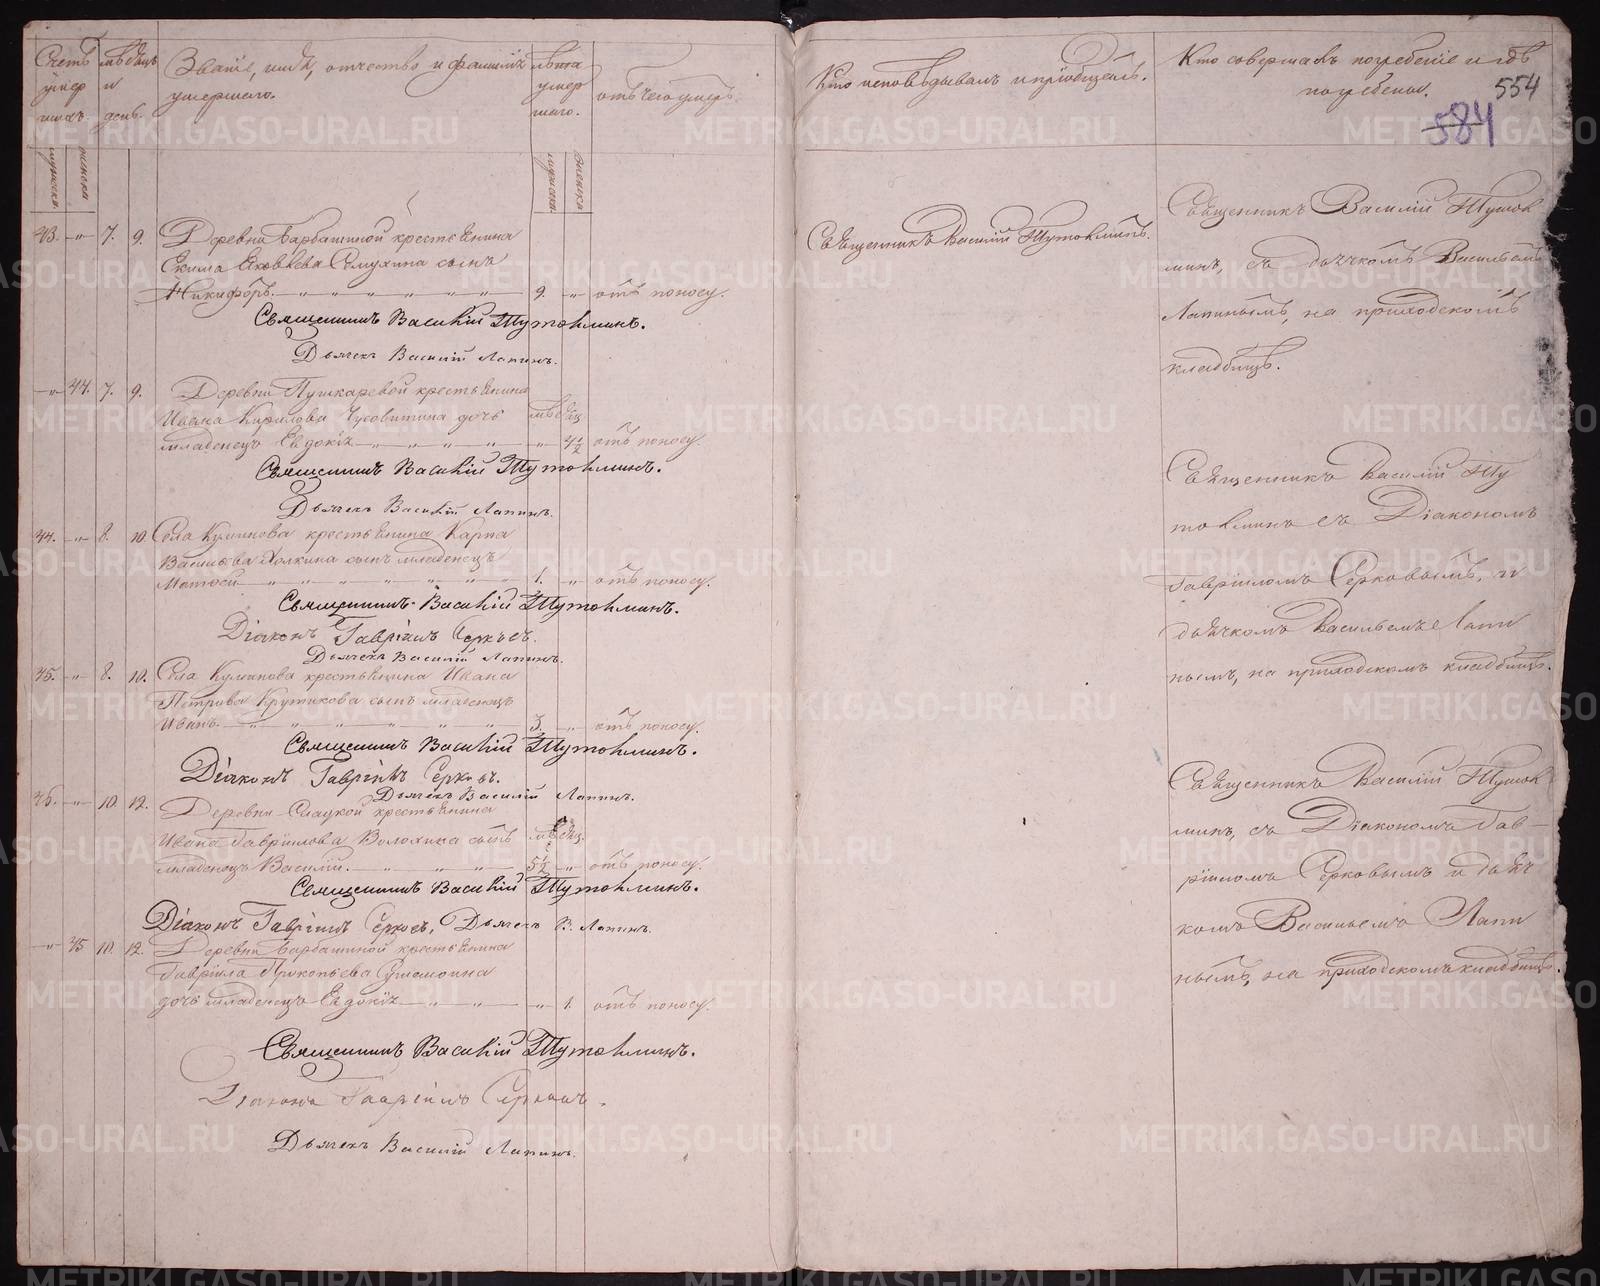 Счетъ умер шихъ.
мѣсяцъ и день.
Званіе, имя, отчество и фамилія умершаго.
лѣта умер шаго.
отъ чего умеръ.
Кто исповѣдывалъ и пріобщалъ.
Кто совершалъ погребеніе и гдѣ погребены.
554
584
мужеска.
женска
мужеска.
женска
43. —"— 7. 9. Деревни Барбашиной крестьянина
Екима Яковлева сынъ
Никифоръ. — " — " — 9. —"— отъ поносу.
Священникъ Василій Тутолминъ.
Дьячекъ Василій Лапинъ.
—"— 44. 7. 9. Деревни Пушкаревой крестьянина
Ивана Кирилова Чусовитина дочь мѣсяц.
младенецъ Евдокія — " — " — 4½ отъ поносу.
Священникъ Василій Тутолминъ.
Дьячекъ Василій Лапинъ.
44. —"— 8. 10. Села крестьянина Карпа
Васильева сынъ младенецъ
— " — " — 1. —"— отъ поносу.
Священникъ Василій Тутолминъ.
Діаконъ Гавріилъ Серковъ.
Дьячекъ Василій Лапинъ.
45. —"— 8. 10. Села крестьянина Ивана
Петрова Крутикова сынъ младенецъ
Иванъ — " — " — 3. " — отъ поносу.
Священникъ Василій Тутолминъ.
Діаконъ Гавріилъ Серковъ.
Дьячекъ Василій Лапинъ.
46. —"— 10. 12. Деревни крестьянина
Ивана Гаврилова сынъ мѣсяц.
младенецъ Василій. — " — " — 5½ —"— отъ поносу.
Священникъ Василій Тутолминъ.
Діаконъ Гавріилъ Серковъ, Дьячекъ В. Лапинъ.
—"— 45 10. 12. Деревни Барбашиной крестьянина
Гаврила Прокопьева
дочь младенецъ Евдокія — " — " — 1. отъ поносу.
Священникъ Василій Тутолминъ.
Діаконъ Гавріилъ Серковъ.
Дьячекъ Василій Лапинъ.
Священникъ Василій Тутолминъ.
Священникъ Василій Тутол
минъ, съ дьячкомъ Васильемъ
Лапинымъ, на приходскомъ
кладбищѣ.
Священникъ Василій Ту
толминъ съ Діакономъ
Гавріиломъ Серковымъ, и
дьячкомъ Васильемъ Лапи
нымъ, на приходскомъ кладбищѣ.
Священникъ Василій Тутол
минъ, съ Діакономъ Гав—
ріиломъ Серковымъ и дьяч
комъ Васильемъ Лапи
нымъ, на приходскомъ кладбищѣ.
METRIKI.GASO-URAL.RU